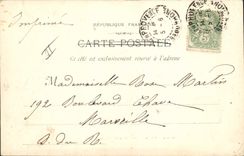 Imprimé
RÉPUBLIQUE FRANÇAISE
CARTE POSTALE
Ce côté est exclusivement réservé à l'adresse
Mademoiselle Rose Martin
192 Boulevard Chave
Marseille
B. du R.